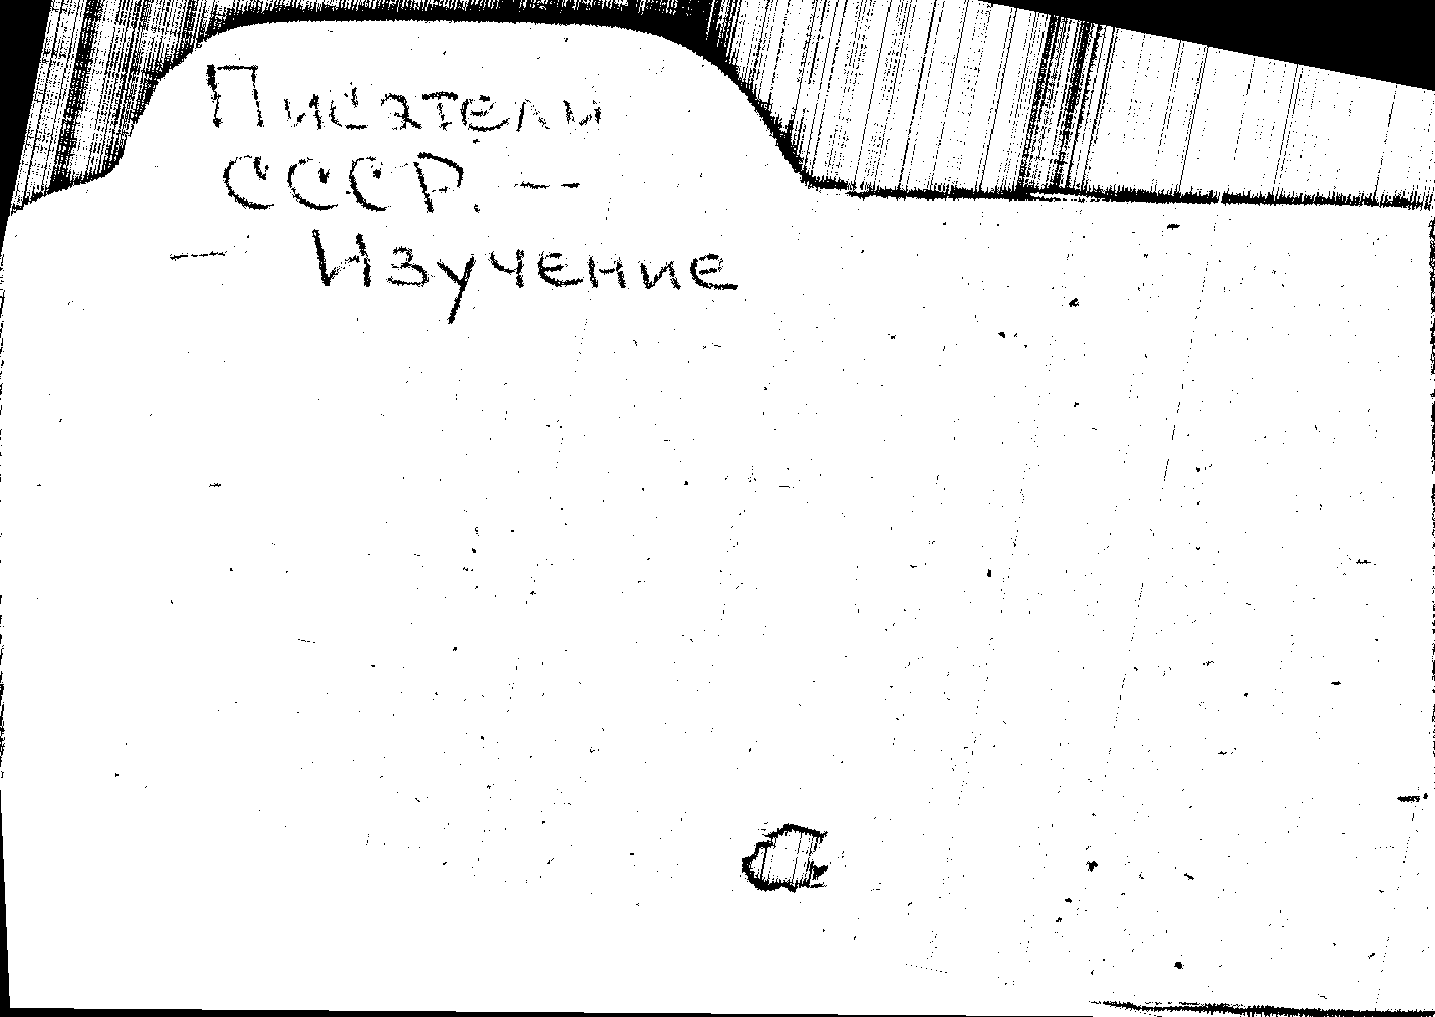 Писатели
СССР. —
— Изучение